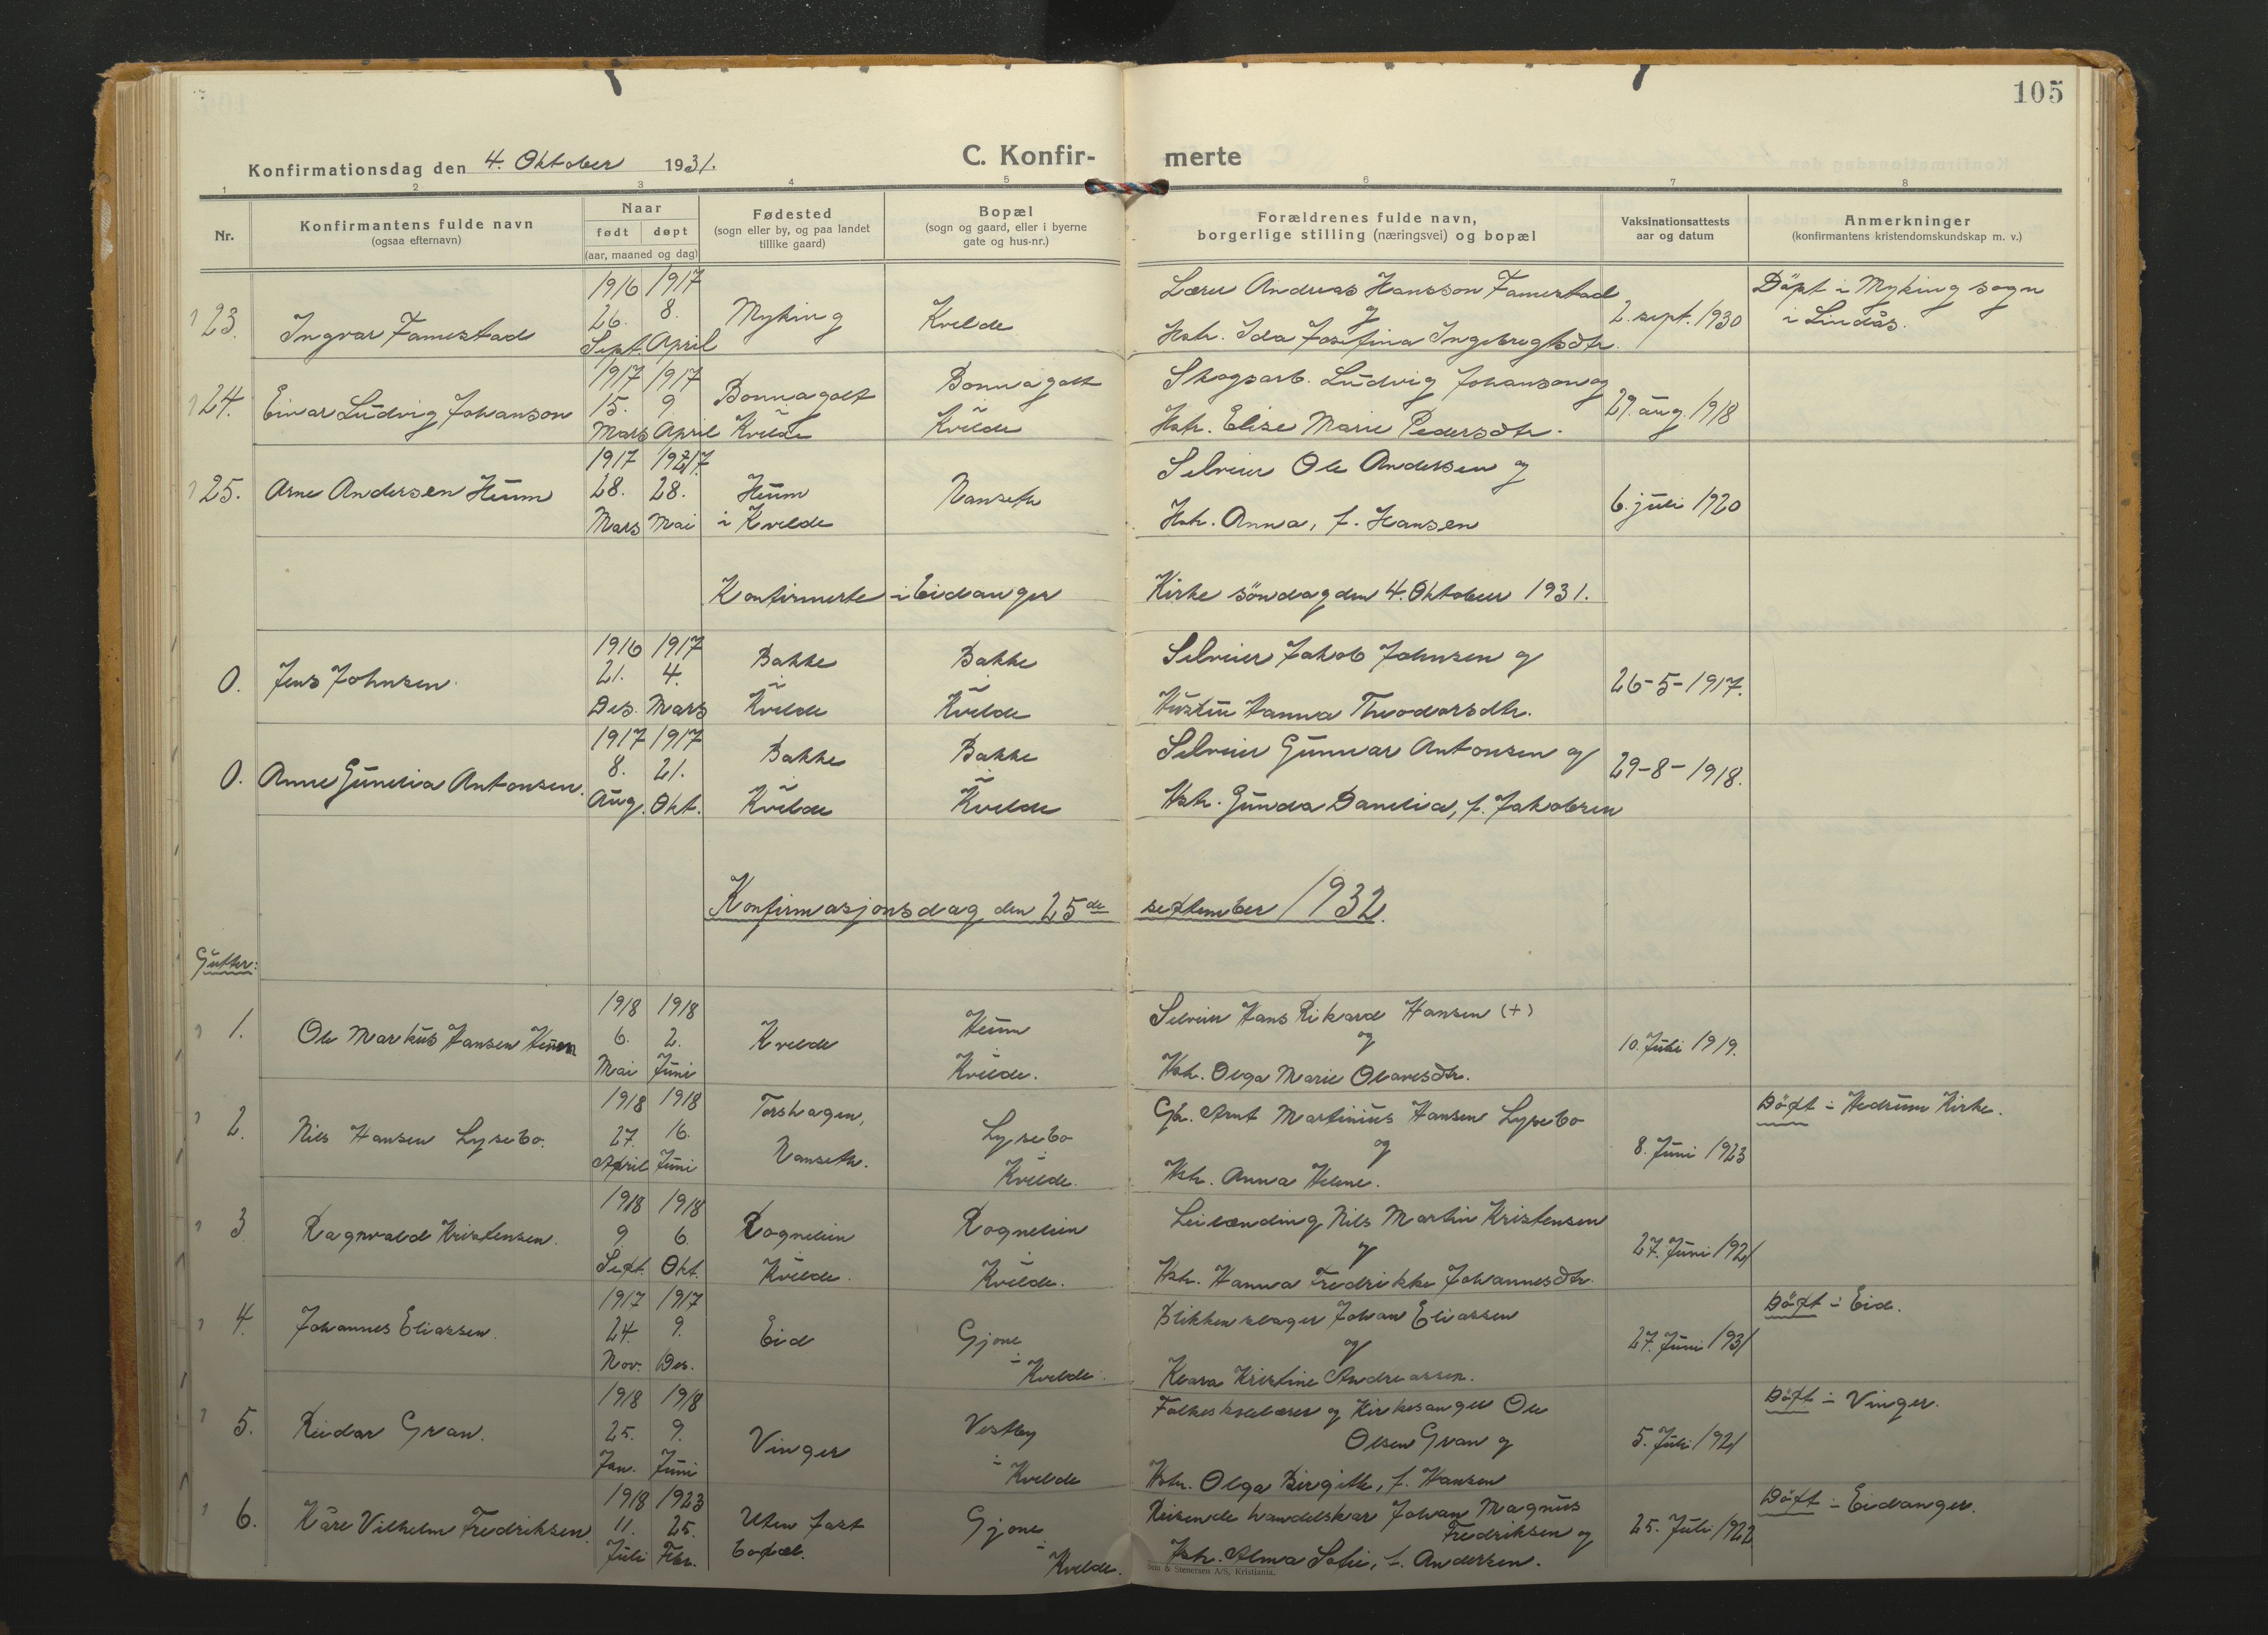 105
Konfirmationsdag den 4. Oktober 1931.
C. Konfir- merte
1 2 3 4 5 6 7 8
Nr.
Konfirmantens fulde navn
(ogsaa efternavn)
Naar
født døpt
(aar, maaned og dag)
Fødested
(sogn eller by, og paa landet
tillike gaard)
Bopæl
(sogn og gaard, eller i byerne
gate og hus-nr.)
Forældrenes fulde navn,
borgerlige stilling (næringsvei) og bopæl
Vaksinationsattests
aar og datum
Anmerkninger
(konfirmantens kristendomskundskap m. v.)
23. Ingvar Famestad
1916 1917
26. 8.
Sept. April
Myking
Kvelde
Lærer Andreas Hansson Famestad
og
Hstr. Ida Josefina Ingebregtsdtr.
2. sept. 1930
Döpt i Myking sogn
i Lindås.
24. Einar Ludvig Johanson
1917 1917
15. 9
Mars April
Bonnagolt
Kvelde
Bonnagolt
Kvelde
Skogsarb. Ludvig Johanson og
Hstr. Elise Marie Pedersdtr.
29. aug. 1918
25. Arne Andersen Heum
1917 1917
28. 28.
Mars Mai
Heum
i Kvelde
Nanseth
Selveier Ole Andersen og
Hstr. Anna, f. Hansen
6. juli 1920
Konfirmerte i Eidanger Kirke söndag den 4. Oktober 1931.
0. Jens Johnsen.
1916 1917
21. 4.
Des. Mars
Bakke
i
Kvelde
Bakke
i
Kvelde
Selveier Jakob Johnsen og
Hustru Hanna Theodorsdtr.
26-5-1917.
0. Anne Gunelia Antonsen.
1917 1917
8. 21.
Aug. Okt.
Bakke
i
Kvelde
Bakke
i
Kvelde
Selveier Gunnar Antonsen og
Hstr. Gunda Danelia, f. Jakobsen
29-8-1918.
Konfirmasjonsdag den 25de september 1932.
Gutter:
1. Ole Markus Hansen Heum
1918 1918
6. 2.
Mai Juni
Kvelde
Heum
Kvelde.
Selveier Hans Rikard Hansen (+)
og
Hstr. Olga Marie Olavesdtr.
10. Juli 1919.
2. Nils Hansen Lysebo.
1918 1918
27. 16.
April Juni
Torshagen,
Nanseth.
Lysebo
Kvelde.
Gbr. Arnt Martinius Hansen Lysebo
og
Hstr. Anna Helene.
8. Juni 1923
Döpt i Hedrum Kirke.
3 Ragnvald Kristensen.
1918 1918
9 6.
Sept. Okt.
Rognelien
i
Kvelde.
Rognelien
i
Kvelde.
Leilænding Nils Martin Kristensen
og
Hstr. Hanna Fredrikke Johannesdtr.
27. Juni 1921
4. Johannes Eliassen.
1917 1917
24. 9.
Nov. Des.
Eid
Gjone
i
Kvelde.
Blikkenslager Johan Eliassen
og
Klara Kristine Andreassen.
27. Juni 1931
Döpt i Eid.
5. Reidar Gran.
1918 1918
25. 9.
Jan. Juni
Vinger
Vestby
i
Kvelde
Folkeskolelærer og Kirkesanger Ole
Olsen Gran og
Hstr. Olga Birgitte, f. Hansen
5. Juli 1921
Döpt i Vinger.
6. Kåre Vilhelm Fredriksen.
1918 1923
11. 25.
Juli Febr.
Uten fast
bopæl.
Gjone
i
Kvelde.
Reisende handelskar Johan Magnus
Fredriksen og
Hstr. Alma Sofie, f. Andersen.
25. Juli 1922
Döpt i Eidanger.
Sem & Stenersen A/S, Kristiania.